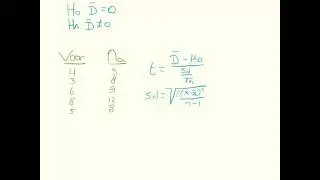 H₀ D̄ = 0
Hₐ D̄ ≠ 0
Voor Na
4 5
3 8
6 9
8 12
5 8
t = (D̄ - μ₀) / (Sd / √n)
Sd = √(Σ(x - x̄)² / (n - 1))